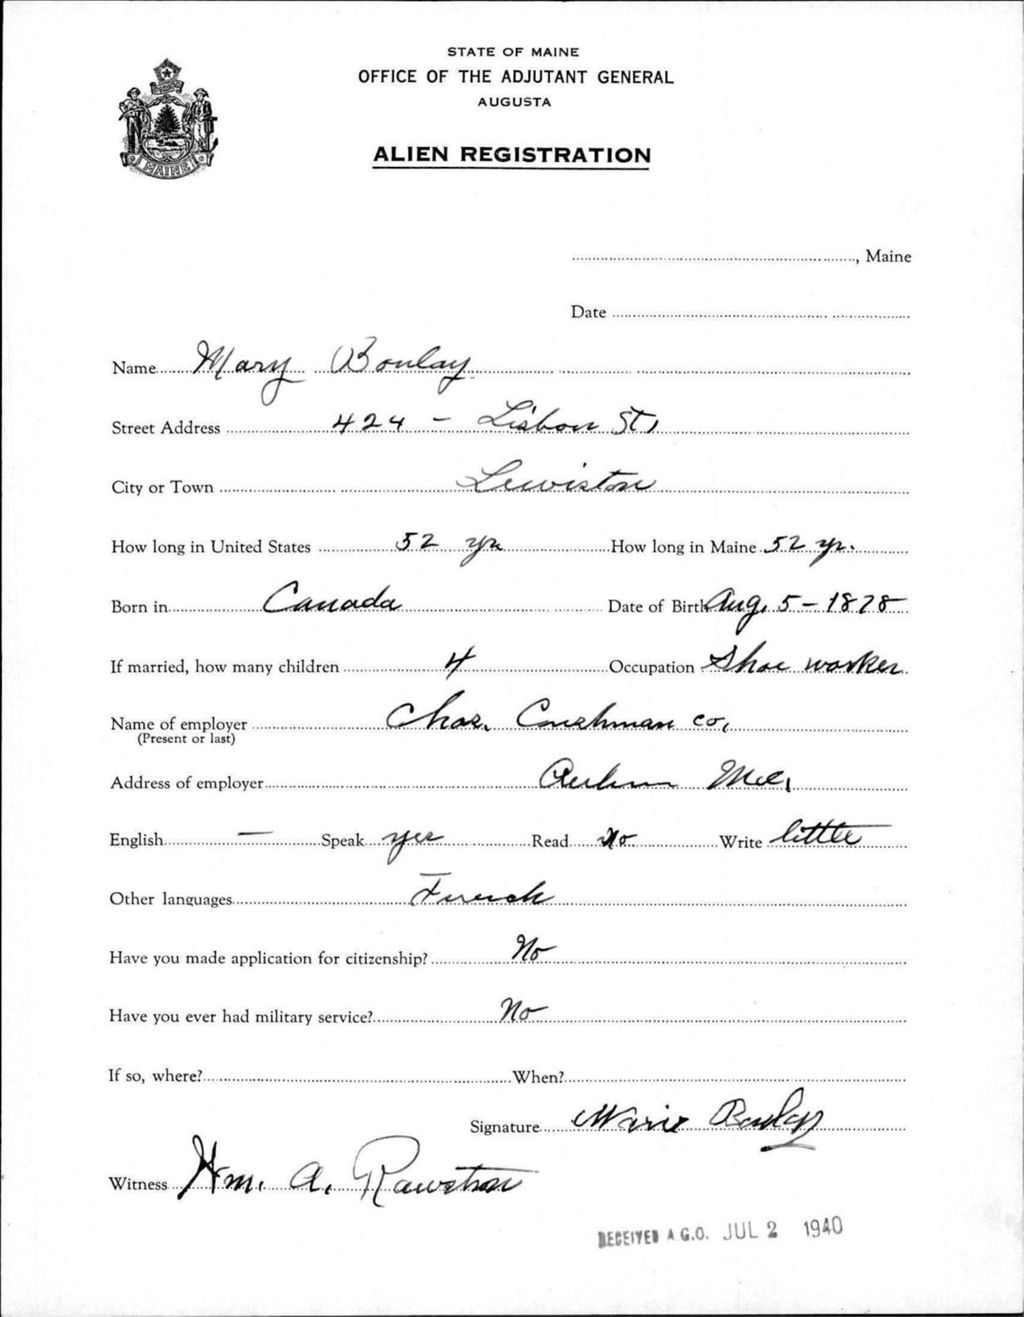 STATE OF MAINE
OFFICE OF THE ADJUTANT GENERAL
AUGUSTA
ALIEN REGISTRATION
MAINE
, Maine
Date
Name Mary Boulay
Street Address 424 - Lisbon St,
City or Town Lewiston
How long in United States 52 yr How long in Maine 52 yr.
Born in Canada Date of Birth Aug. 5 - 1878
If married, how many children 4 Occupation Shoe worker
Name of employer Chas. Cushman co,
(Present or last)
Address of employer Auburn Me,
English — Speak yes Read No Write little
Other languages French
Have you made application for citizenship? No
Have you ever had military service? No
If so, where? When?
Signature Marie Boulay
Witness Wm. A.
RECEIVED A.G.O. JUL 2 1940